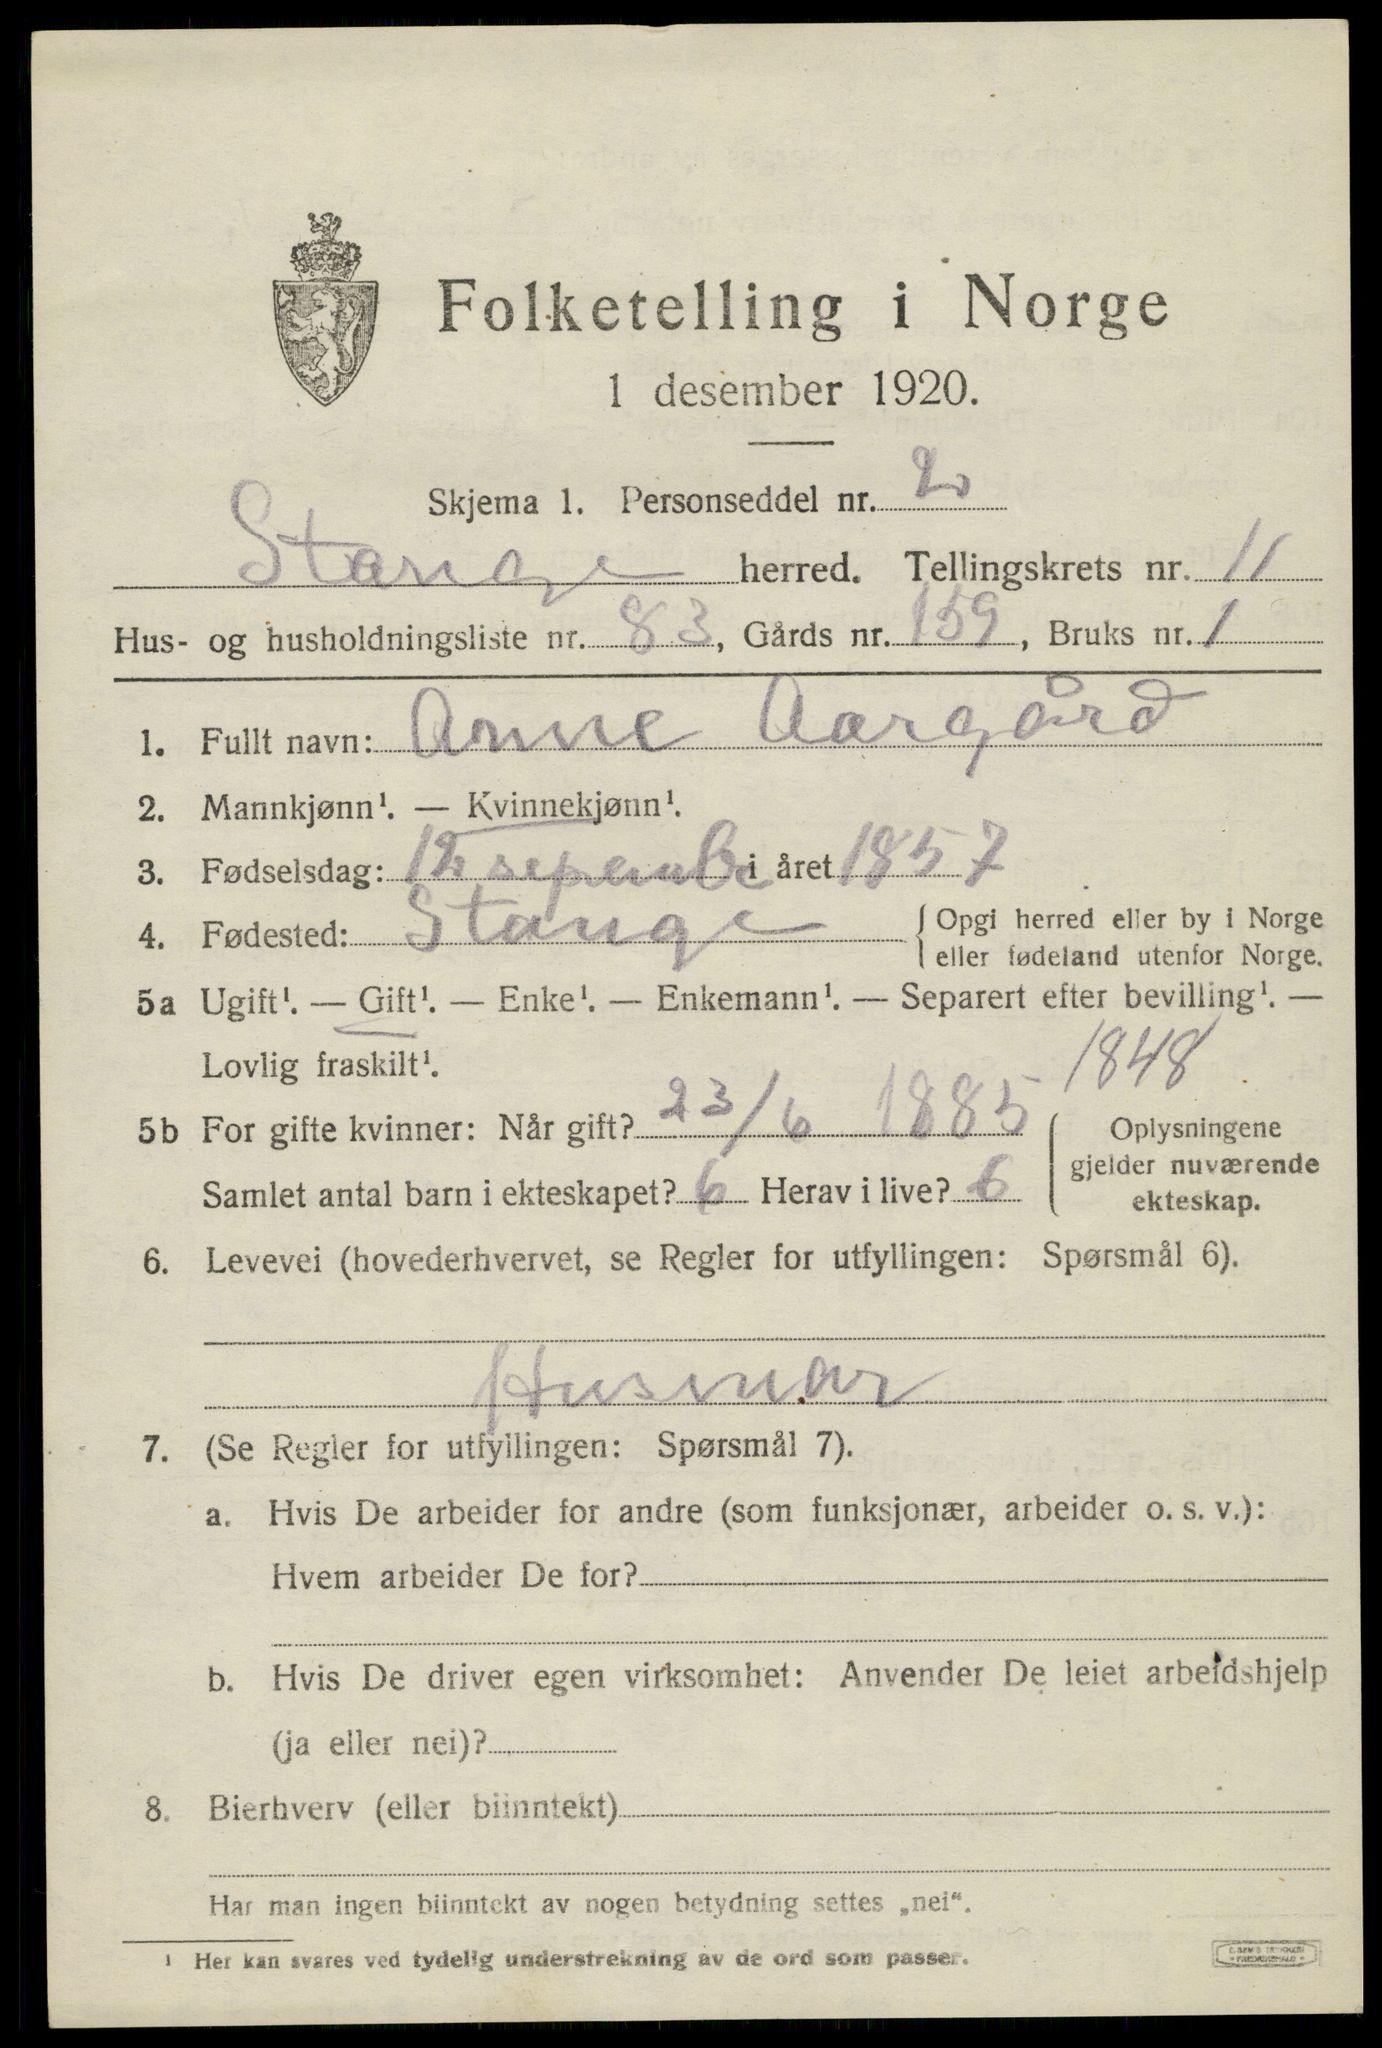 Folketelling i Norge
1 desember 1920.
Skjema 1. Personseddel nr. 2
Stange herred. Tellingskrets nr. 11
Hus- og husholdningsliste nr. 83, Gårds nr. 159, Bruks nr. 1
1. Fullt navn: Anne Aargård
2. Mannkjønn¹. — Kvinnekjønn¹.
3. Fødselsdag: 12 september i året 1857
4. Fødested: Stange { Opgi herred eller by i Norge
eller fødeland utenfor Norge.
5a Ugift¹. — Gift¹. — Enke¹. — Enkemann¹. — Separert efter bevilling¹. —
Lovlig fraskilt¹. 1848
5b For gifte kvinner: Når gift? 23/6 1885 { Oplysningene
gjelder nuværende
Samlet antal barn i ekteskapet? 6 Herav i live? 6
ekteskap.
6. Levevei (hovederhvervet, se Regler for utfyllingen: Spørsmål 6).
Husmor
7. (Se Regler for utfyllingen: Spørsmål 7).
a. Hvis De arbeider for andre (som funksjonær, arbeider o. s. v.):
Hvem arbeider De for?
b. Hvis De driver egen virksomhet: Anvender De leiet arbeidshjelp
(ja eller nei)?
8. Bierhverv (eller biinntekt)
Har man ingen biinntekt av nogen betydning settes „nei“.
¹ Her kan svares ved tydelig understrekning av de ord som passer.